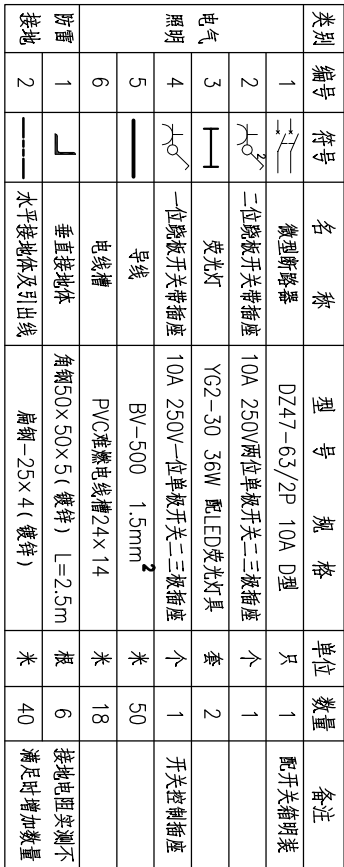 类别 编号 符号 名称 型号规格 单位 数量 备注
电气照明 1 微型断路器 DZ47-63/2P 10A D型 只 1 配开关箱明装
2 2 二位跷板开关带插座 10A 250V两位单极开关二三极插座 个 1
3 荧光灯 YG2-30 36W 配LED荧光灯具 套 2
4 一位跷板开关带插座 10A 250V一位单极开关二三极插座 个 1 开关控制插座
5 导线 BV-500 1.5mm² 米 50
6 电线槽 PVC难燃电线槽24×14 米 18
防雷接地 1 垂直接地体 角钢50×50×5(镀锌) L=2.5m 根 6 接地电阻实测不
2 水平接地体及引出线 扁钢-25×4(镀锌) 米 40 满足时增加数量